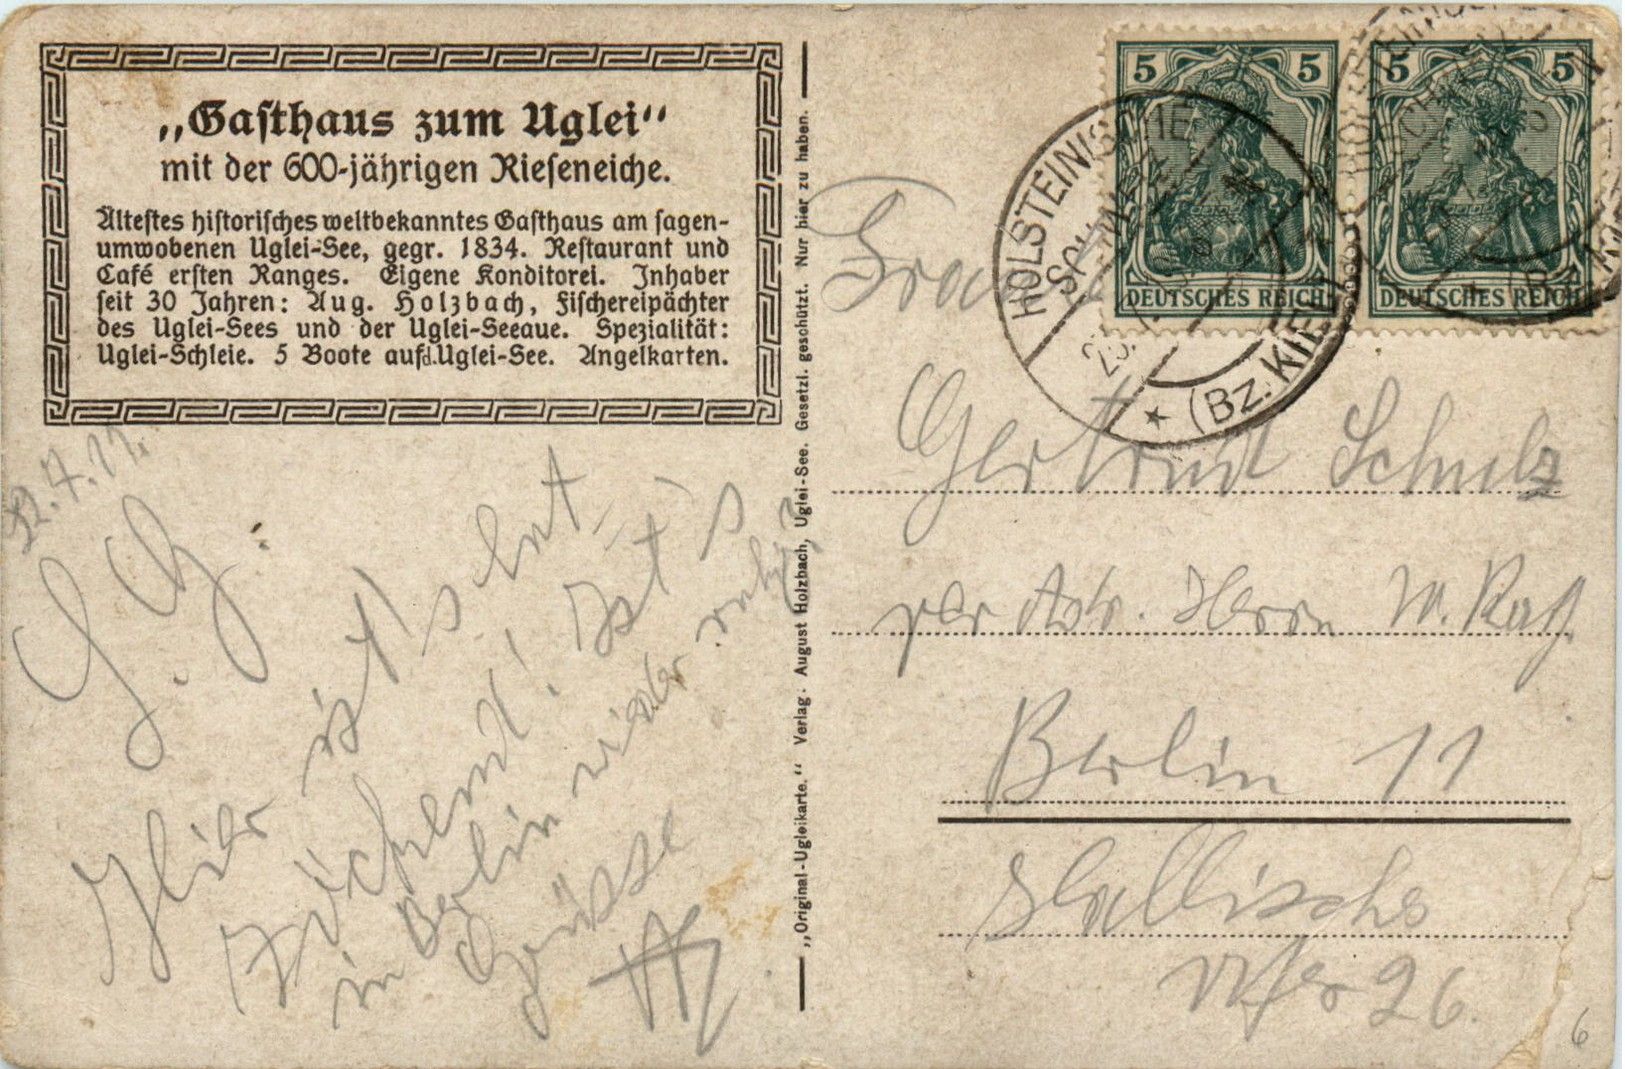 „Gasthaus zum Uglei“
mit der 600-jährigen Rieseneiche.
Ältestes historisches weltbekanntes Gasthaus am sagen-
umwobenen Uglei-See, gegr. 1834. Restaurant und
Café ersten Ranges. Eigene Konditorei. Inhaber
seit 30 Jahren: Aug. Holzbach, Fischereipächter
des Uglei-Sees und der Uglei-Seeaue. Spezialität:
Uglei-Schleie. 5 Boote auf d. Uglei-See. Angelkarten.
L. G.
Hier ist's
! Ist's
in Berlin wieder ruhig?
Grüsse
„Original-Ugleikarte.“ Verlag: August Holzbach, Uglei-See. Gesetzl. geschützt. Nur hier zu haben.
5 5
DEUTSCHES REICH
5 5
DEUTSCHES REICH
HOLSTEINISCHE
SCHWEIZ
(Bz. KIEL)
Gertrud Schulz
per Adr. Herrn W.
Berlin 11
Hallesche
Ufer 26.
6